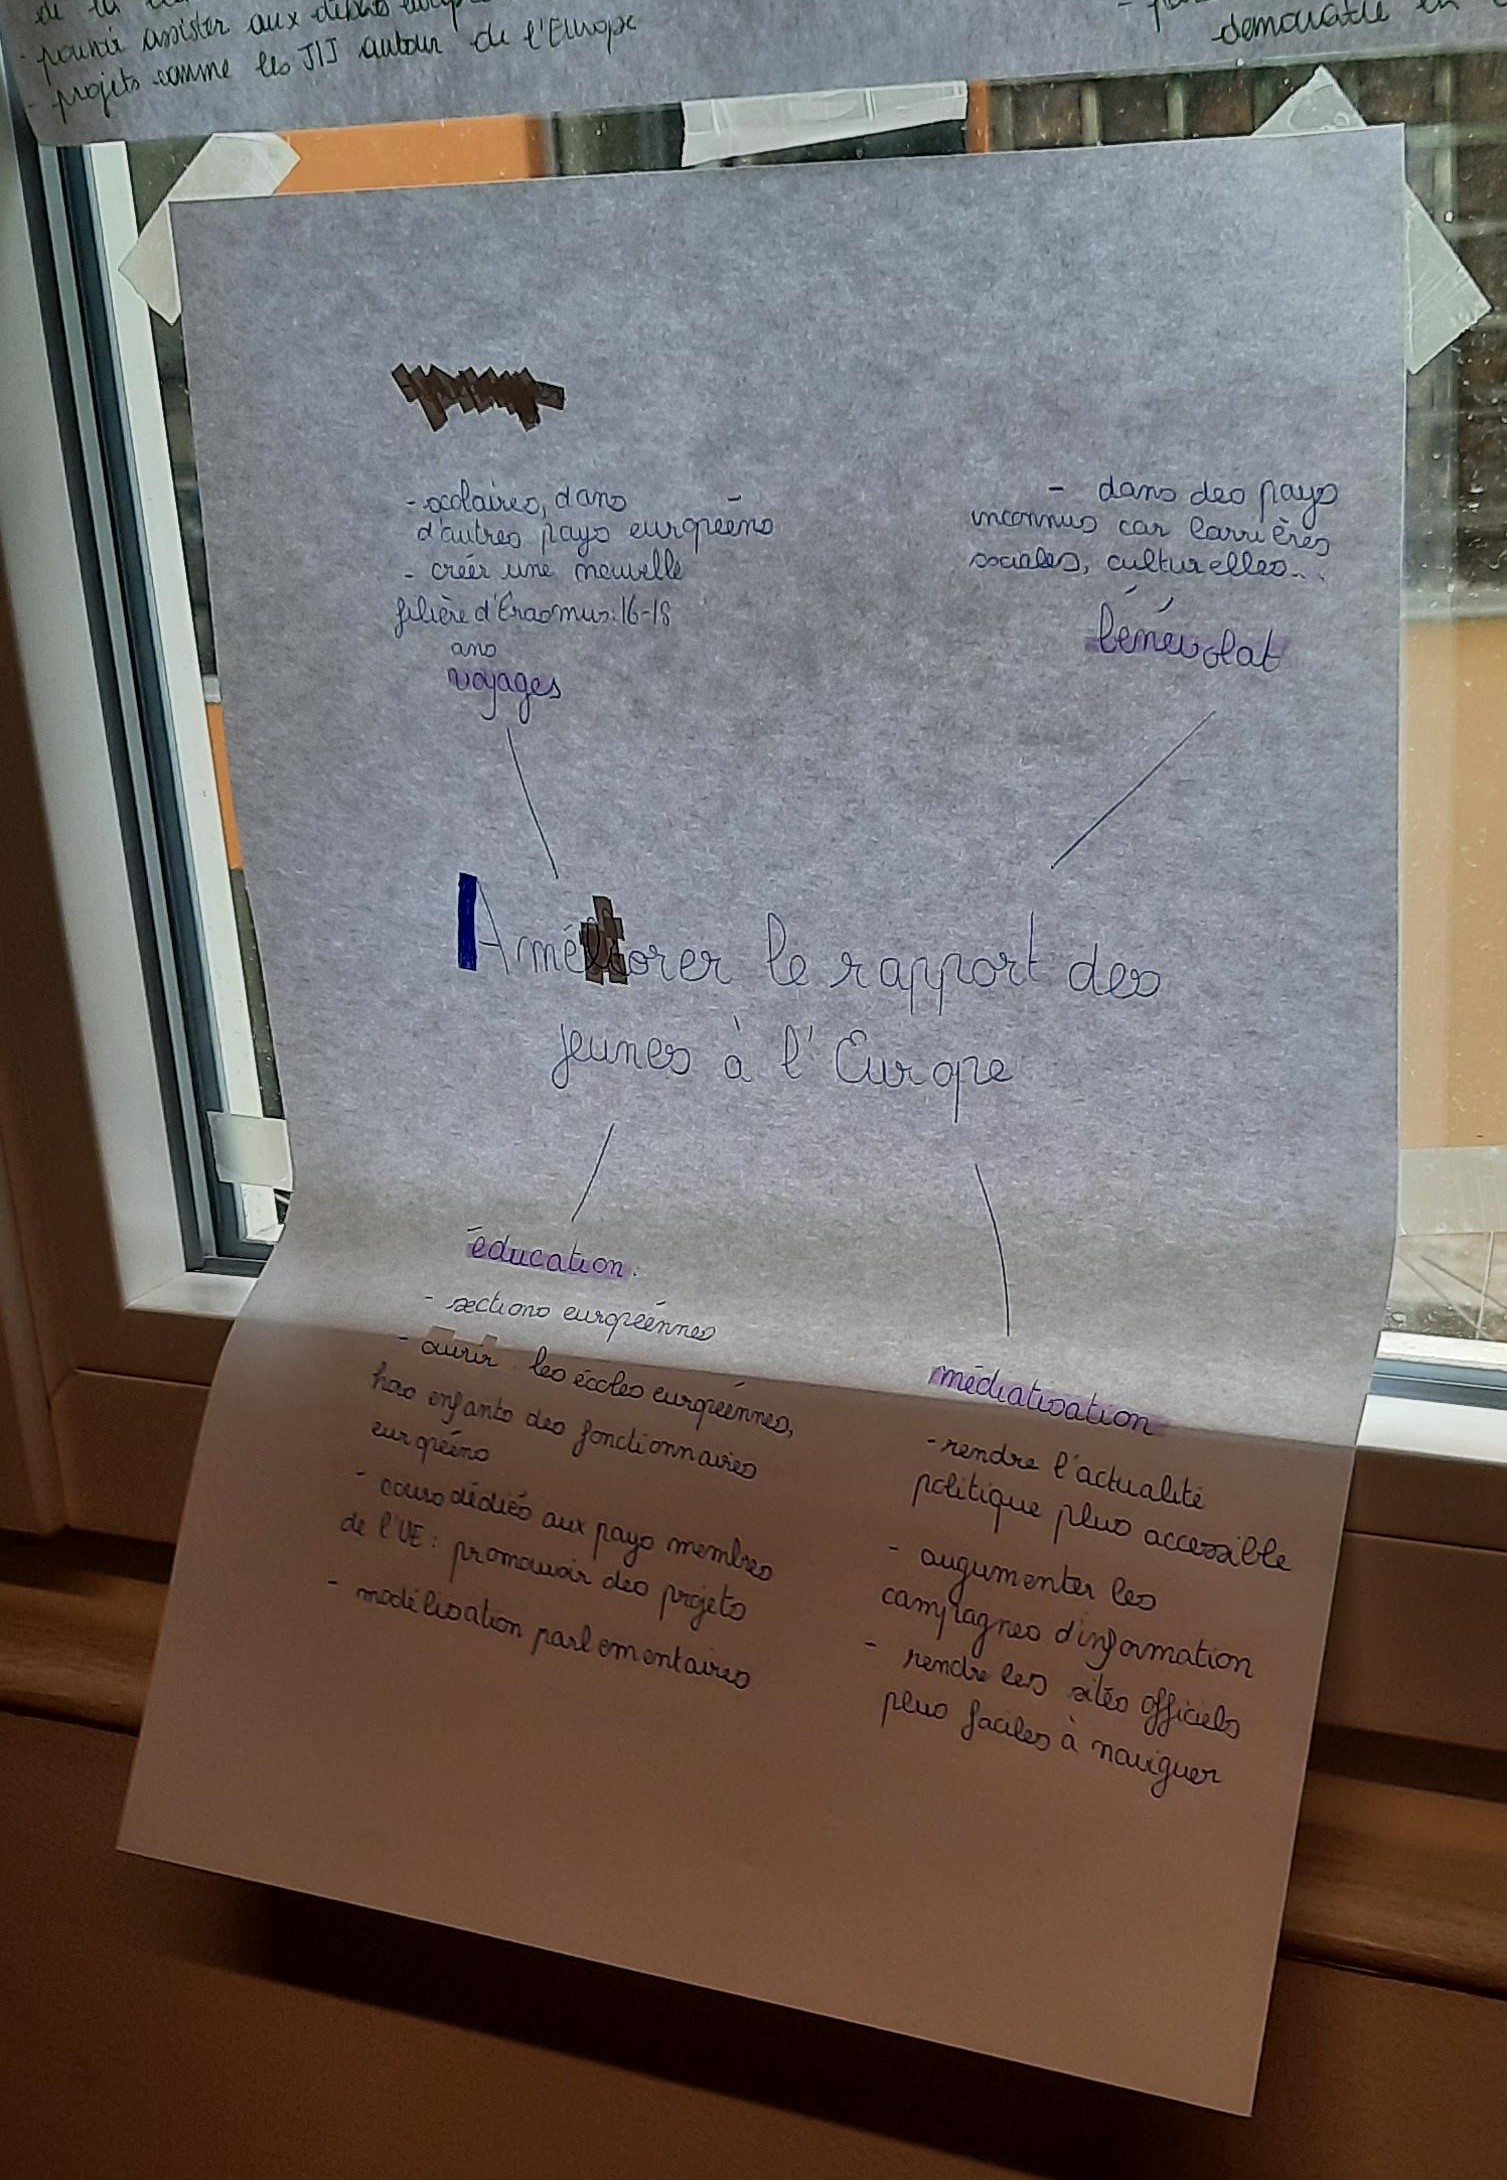 de la
- pouvoir assister aux débats
- projets comme les JIJ autour de l'Europe
démocratie en
- scolaires, dans
d'autres pays européens
- créer une nouvelle
filière d'Erasmus: 16-18
ans
voyages
- dans des pays
inconnus car barrières
sociales, culturelles...
bénévolat
Améliorer le rapport des
jeunes à l'Europe
éducation.
- sections européennes
- ouvrir les écoles européennes,
hors enfants des fonctionnaires
européens
- cours dédiés aux pays membres
de l'UE: promouvoir des projets
- modélisation parlementaires
médiatisation
- rendre l'actualité
politique plus accessible
- augumenter les
campagnes d'information
- rendre les sites officiels
plus faciles à naviguer